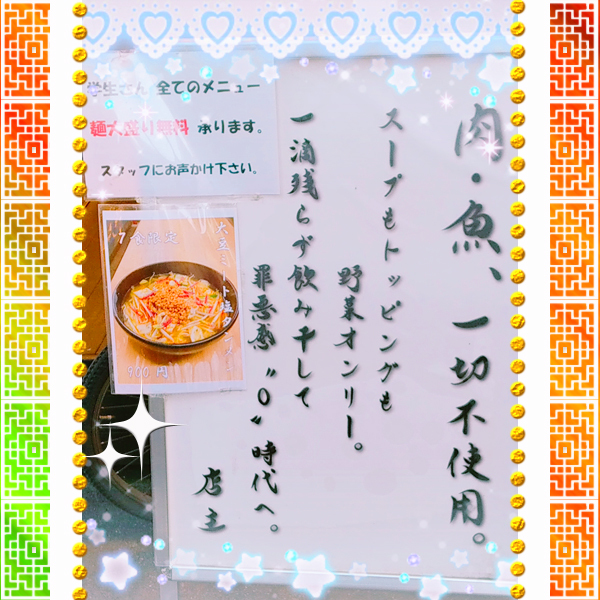 肉・魚、一切不使用。
スープもトッピングも
野菜オンリー。
一滴残らず飲み干して
罪悪感〝0〟時代へ。
店主
学生さん 全てのメニュー
麺大盛り無料 承ります。
スタッフにお声かけ下さい。
大豆ミート塩タンメン
7食限定
900円